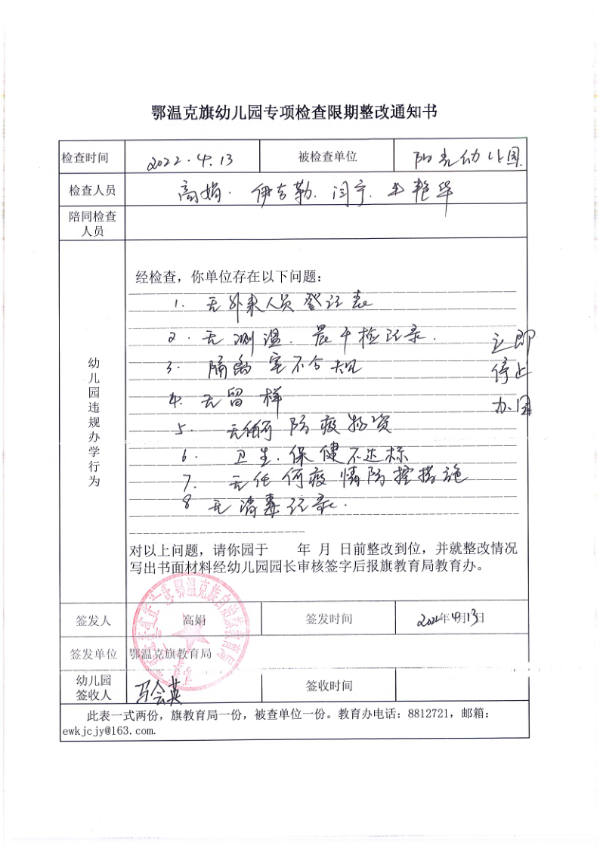 鄂温克旗幼儿园专项检查限期整改通知书
检查时间 2022.4.13 被检查单位 阳光幼儿园
检查人员 高娟. 伊吉勒. 闫宁.
陪同检查
人员
幼儿园违规办学行为
经检查，你单位存在以下问题：
1. 无外来人员登记表
2. 无测温. 晨午检记录.
3. 隔离室不合规
4. 无留样
5 无任何防疫物资
6 卫生.保健不达标
7 无任何疫情防控措施
8 无消毒记录.
立即
停止
办园
对以上问题，请你园于 年 月 日前整改到位，并就整改情况
写出书面材料经幼儿园园长审核签字后报旗教育局教育办。
签发人 高娟 签发时间 2022年4月13日
签发单位 鄂温克旗教育局
幼儿园
签收人 马会英 签收时间
此表一式两份，旗教育局一份，被查单位一份。教育办电话：8812721，邮箱：
ewkjcjy@163.com.